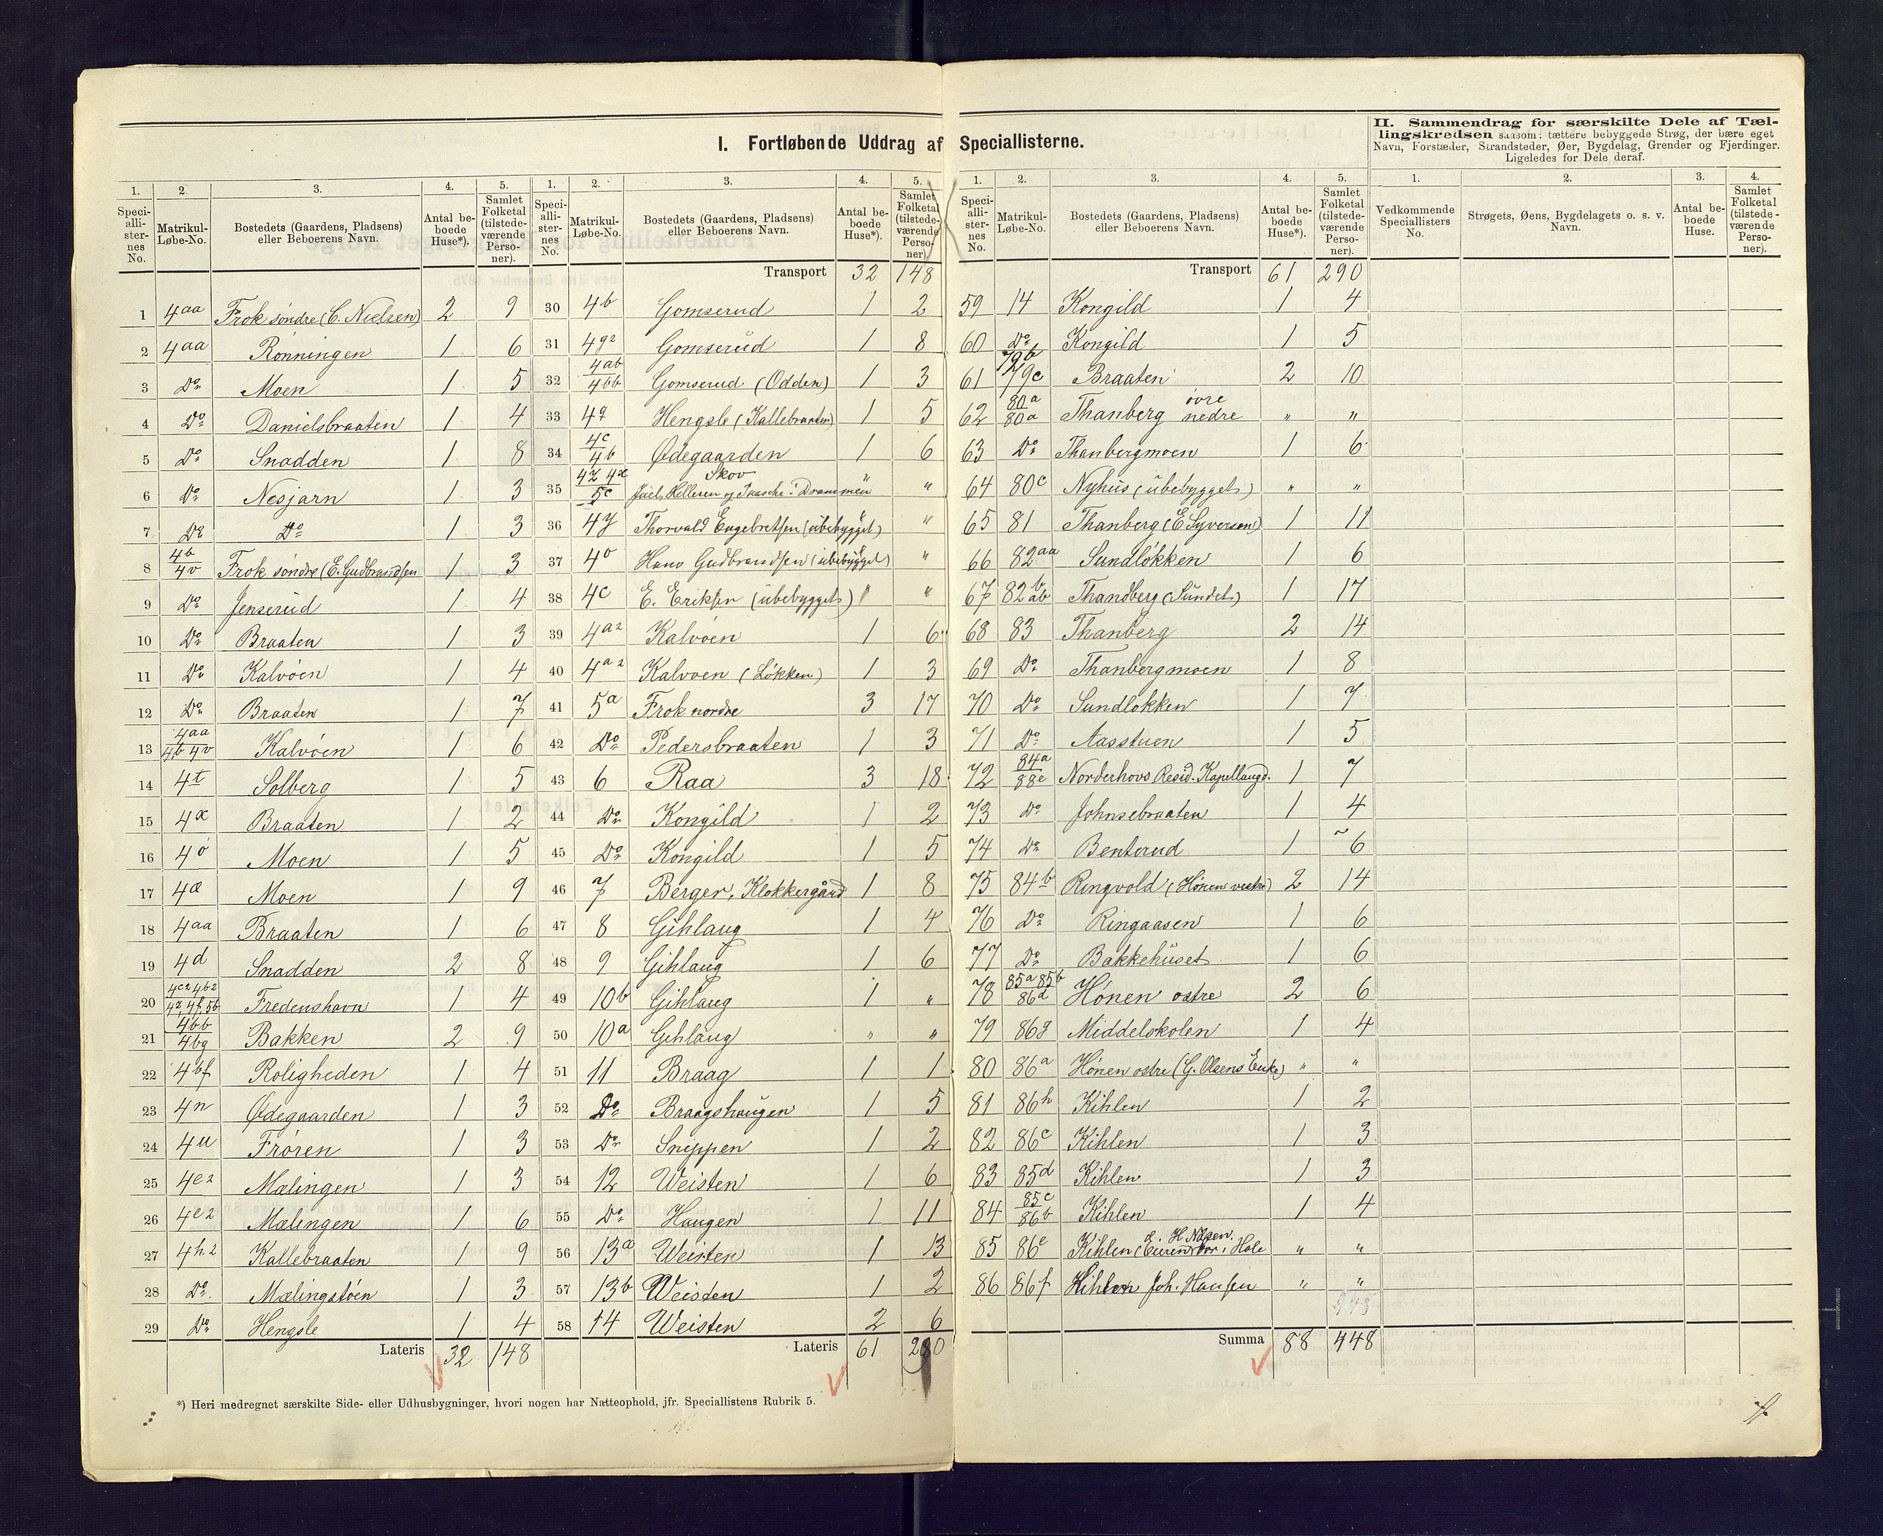 I. Fortløbende Uddrag af Speciallisterne.
II. Sammendrag for særskilte Dele af Tællingskredsen saasom: tættere bebyggede Strøg, der bære eget Navn, Forstæder, Strandsteder, Øer, Bygdelag, Grender og Fjerdinger. Ligeledes for Dele deraf.
1. 2. 3. 4. 5.
Speciallisternes No. Matrikul-Løbe-No. Bostedets (Gaardens, Pladsens) eller Beboerens Navn. Antal beboede Huse*). Samlet Folketal (tilstedeværende Personer).
1 4aa Frok søndre (C. Nielsen) 2 9
2 4aa Rønningen 1 6
3 Do Moen 1 5
4 Do Danielsbraaten 1 4
5 Do Snadden 1 8
6 Do Nesjarn 1 3
7 Do Do 1 3
8 4b 4v Frok søndre (E. Gudbrandsen 1 3
9 Do Jenserud 1 4
10 Do Braaten 1 3
11 Do Kalvøen 1 4
12 Do Braaten 1 7
13 4aa 4b 4v Kalvøen 1 6
14 4t Solberg 1 5
15 4æ Braaten 1 2
16 4o Moen 1 5
17 4æ Moen 1 9
18 4aa Braaten 1 6
19 4d Snadden 2 8
20 4c2 4b2 4z, 4f, 5b Fredenshavn 1 4
21 4bb 4bg Bakken 2 9
22 4bf Roligheden 1 4
23 4n Ødegaarden 1 3
24 4u Frøren 1 3
25 4e2 Mælingen 1 3
26 4e2 Mælingen 1 6
27 4h2 Kallebraaten 1 9
28 Do Mælingstøen 1 3
29 Do Hengsle 1 4
Lateris 32 148
*) Heri medregnet særskilte Side- eller Udhusbygninger, hvori nogen har Natteophold, jfr. Speciallistens Rubrik 5.
1. 2. 3. 4. 5.
Speciallisternes No. Matrikul-Løbe-No. Bostedets (Gaardens, Pladsens) eller Beboerens Navn. Antal beboede Huse*). Samlet Folketal (tilstedeværende Personer).
Transport 32 148
30 4b Gomserud 1 2
31 4g2 Gomserud 1 8
32 4ab 4bb Gomserud (Odden) 1 3
33 4q Hengsle (Kallebraaten) 1 5
34 4c 4b Ødegaarden 1 6
35 4z 4æ 5c Skov Juel, Hellesen og Drammen " "
36 4y Thorvald Engebretsen (übebygget) " "
37 4o Hans Gudbrandsen (übebygget) " "
38 4c E. Eriksen (übebygget) " "
39 4a2 Kalvøen 1 6
40 4a2 Kalvøen (Løkken) 1 3
41 5a Frok nordre 3 17
42 Do Pedersbraaten 1 3
43 6 Raa 3 18
44 Do Kongild 1 2
45 Do Kongild 1 5
46 7 Berger, Klokkergård 1 8
47 8 Gihlaug 1 4
48 9 Gihlaug 1 6
49 10b Gihlaug 1 "
50 10a Gihlaug " "
51 11 Braag 1 1
52 Do Braagshaugen 1 5
53 Do Snippen 1 2
54 12 Weisten 1 6
55 Do Haugen 1 11
56 13a Weisten 1 13
57 13b Weisten 1 2
58 14 Weisten 2 6
Lateris 61 290
1. 2. 3. 4. 5.
Speciallisternes No. Matrikul-Løbe-No. Bostedets (Gaardens, Pladsens) eller Beboerens Navn. Antal beboede Huse*). Samlet Folketal (tilstedeværende Personer).
Transport 61 290
59 14 Kongild 1 4
60 Do Kongild 1 5
61 79b 79c Braaten 2 10
62 80a 80a Thanberg øvre nedre " "
63 Do Thanbergmoen 1 6
64 80c Nyhus (übebygget) " "
65 81 Thanberg (E Syversen) 1 11
66 82aa Sundløkken 1 6
67 82b ab Thandberg (Sundet) 1 17
68 83 Thanberg 2 14
69 Do Thanbergmoen 1 8
70 Do Sundløkken 1 7
71 Do Aasstuen 1 5
72 84a 88e Norderhovs Resid. Kapellangd. 1 7
73 Do Johnsebraaten 1 4
74 Do Benterud 1 6
75 84b Ringvold (Hønen vestre) 2 14
76 Do Ringaasen 1 6
77 Do Bakkehuset 1 6
78 85a 85b 86d Hønen østre 2 6
79 86g Middelskolen 1 4
80 86a Hønen østre (G. Olsens Enke) " "
81 86h Kihlen 1 2
82 86c Kihlen 1 3
83 85d Kihlen 1 3
84 85c 86b Kihlen 1 4
85 86e Kihlen ( H. Nilsen. Hole " "
86 86f Kihlen Joh. Hansen " "
Summa 88 448
1. 2. 3. 4.
Vedkommende Speciallisters No. Strøgets, Øens, Bygdelagets o. s. v. Navn. Antal beboede Huse. Samlet Folketal (tilstedeværende Personer).